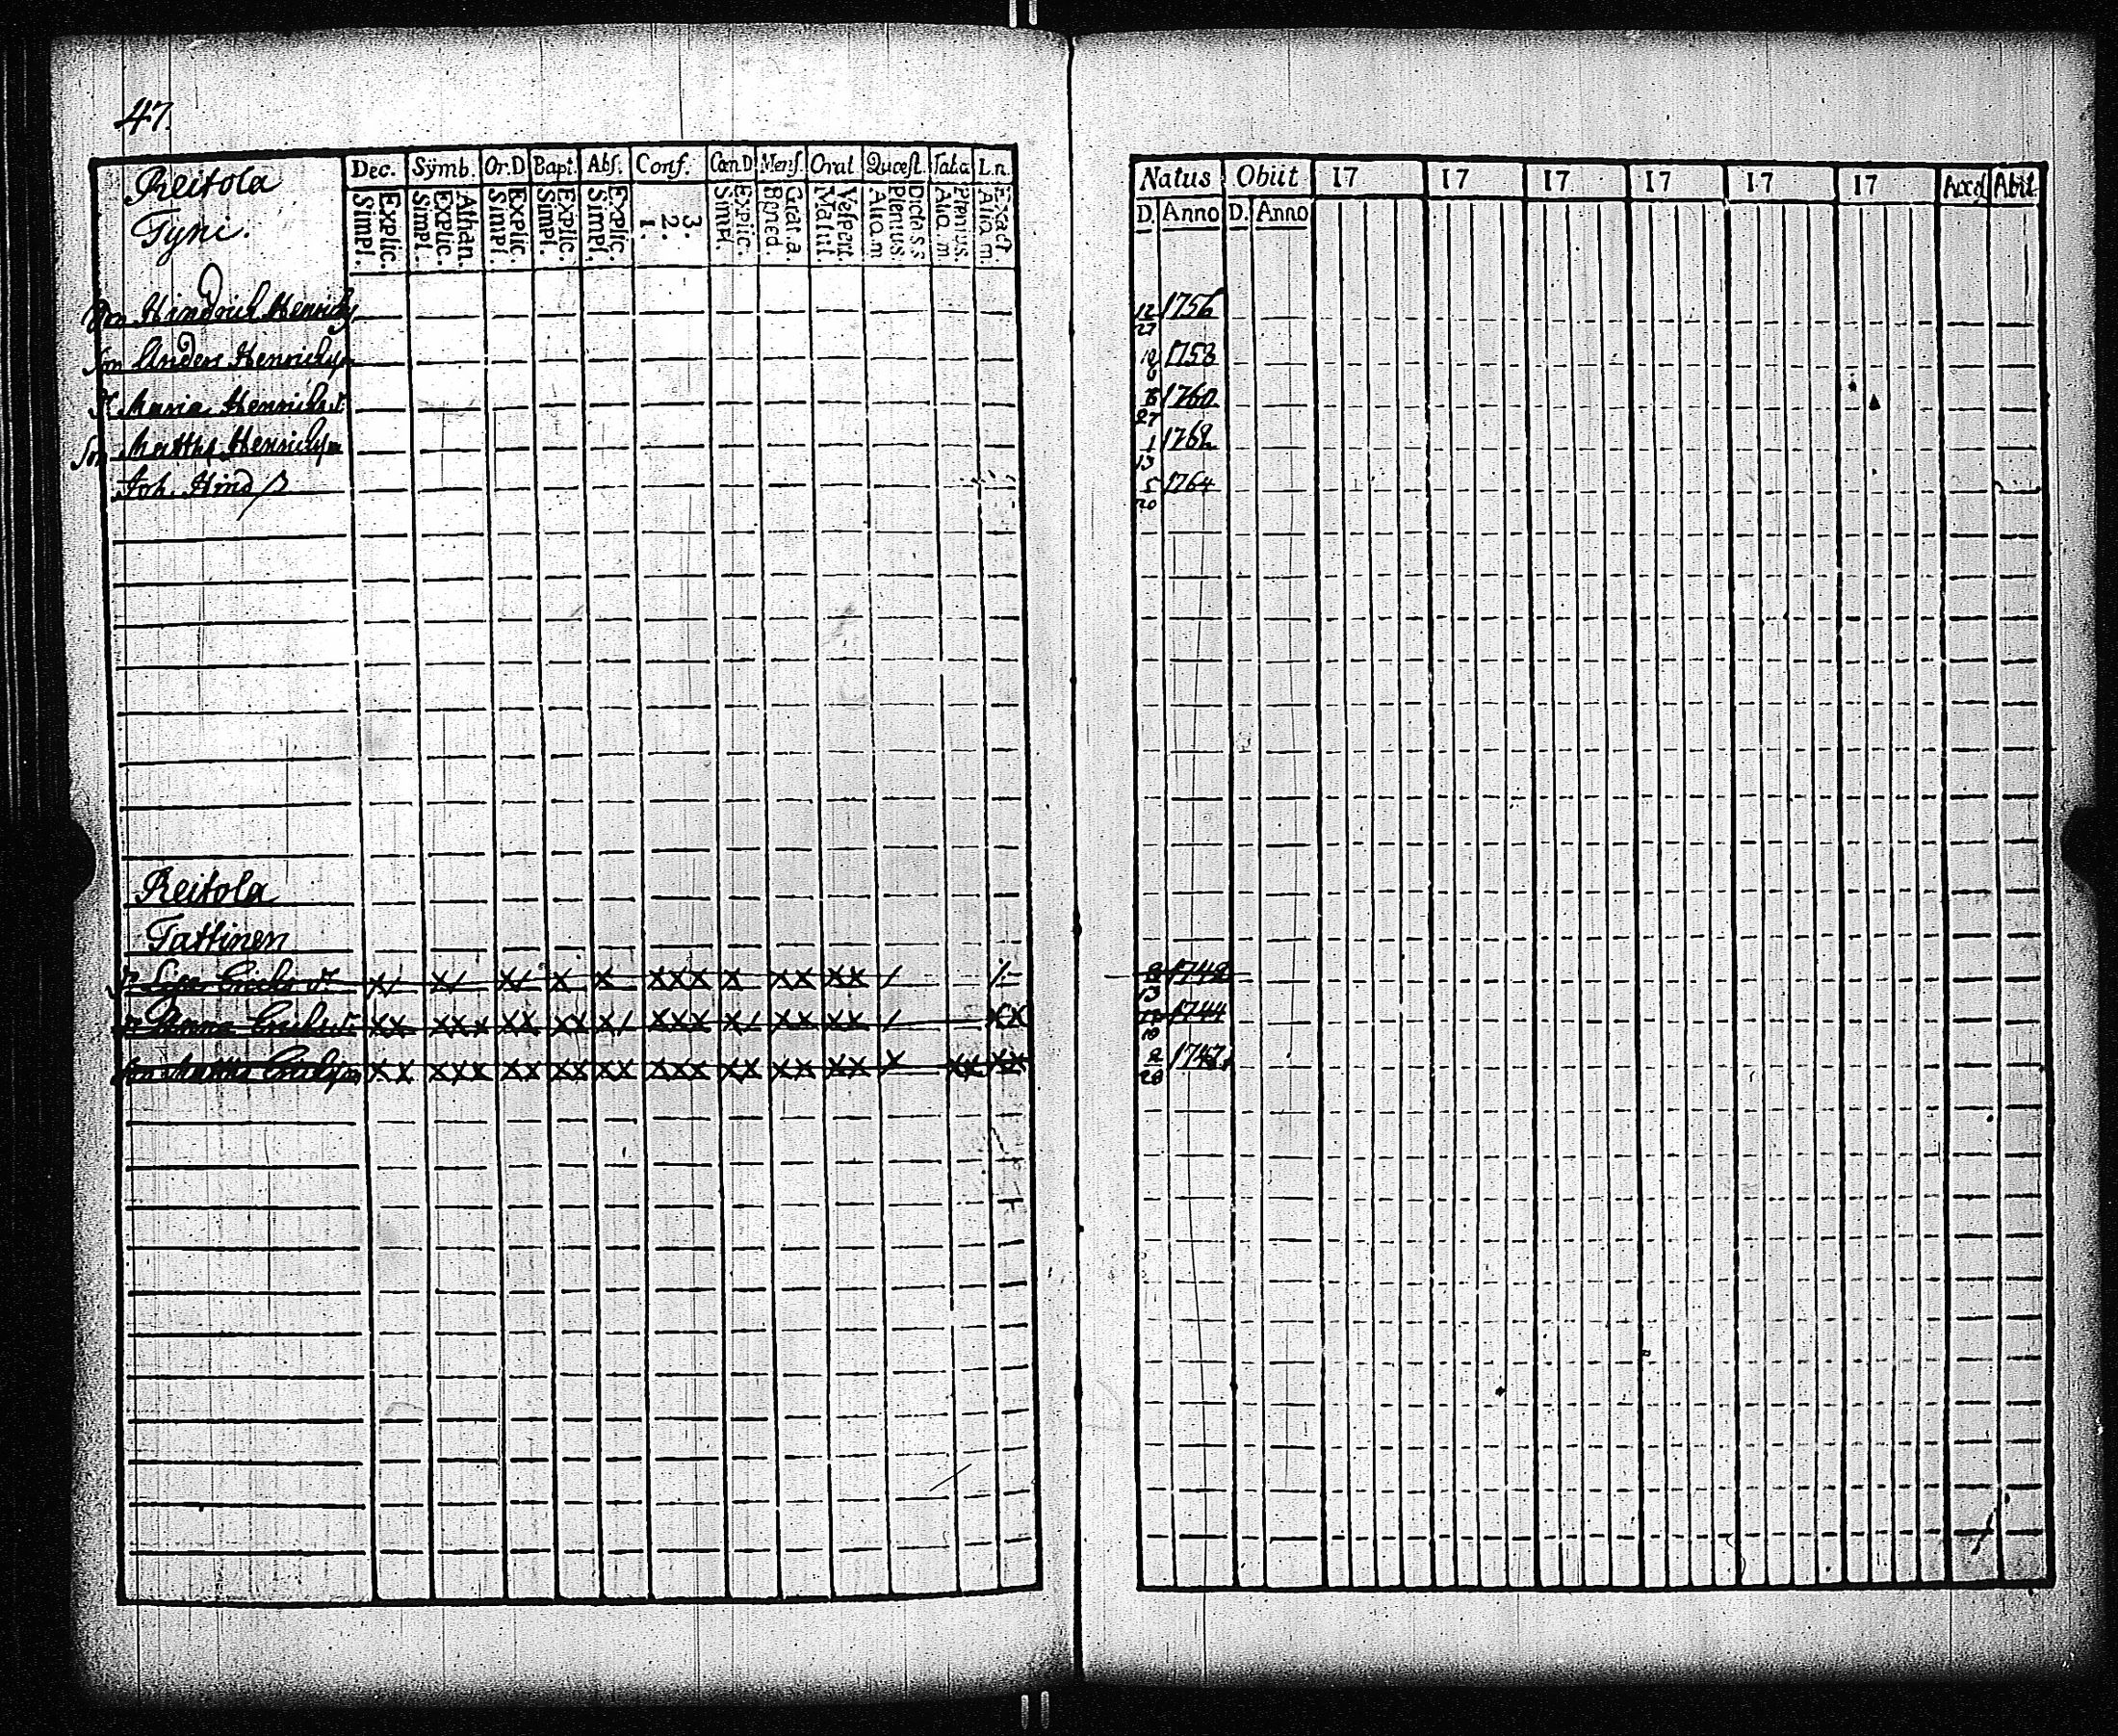 47.
Reitola
Tyni.
Dec. Symb. Or.D Bapt. Abs. Conf. Can.D Mens. Orat Quæst. Tab.a L.n.
Simpl. Explic. Simpl. Explic. Athan. Simpl. Explic. Simpl. Explic. Simpl. Explic. 1. 2. 3. Simpl. Explic. Bened. Grat. a. Matut. Vespert. Aliq. m. Plenius. Dict. s.s Aliq. m Plenius. Aliq. m. Exact
Natus Obiit 17 17 17 17 17 17 Accd Abit
D. Anno D. Anno
Son Hindrich Henrichs 12 27 1756
Son Anders Henrichson 1758
Maria Henrichs d. 27 1760
Son Matths Henrichson 1 13 1762
Joh. Hind ß 5 20 1764
Reitola
Tattinen
Lisa Erichs d. x/ x/ x/ x x xxx x xx xx / /- 1742
Anna Erichs d. xx xxx xx xx x/ xxx x/ xx xx / xx 1744
Son Matths Erichson xx xxx xx xx xx xxx xx xx xx x xx xx 2 28 1747